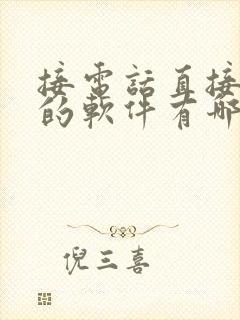 接電話直接
的軟件有哪
倪三喜